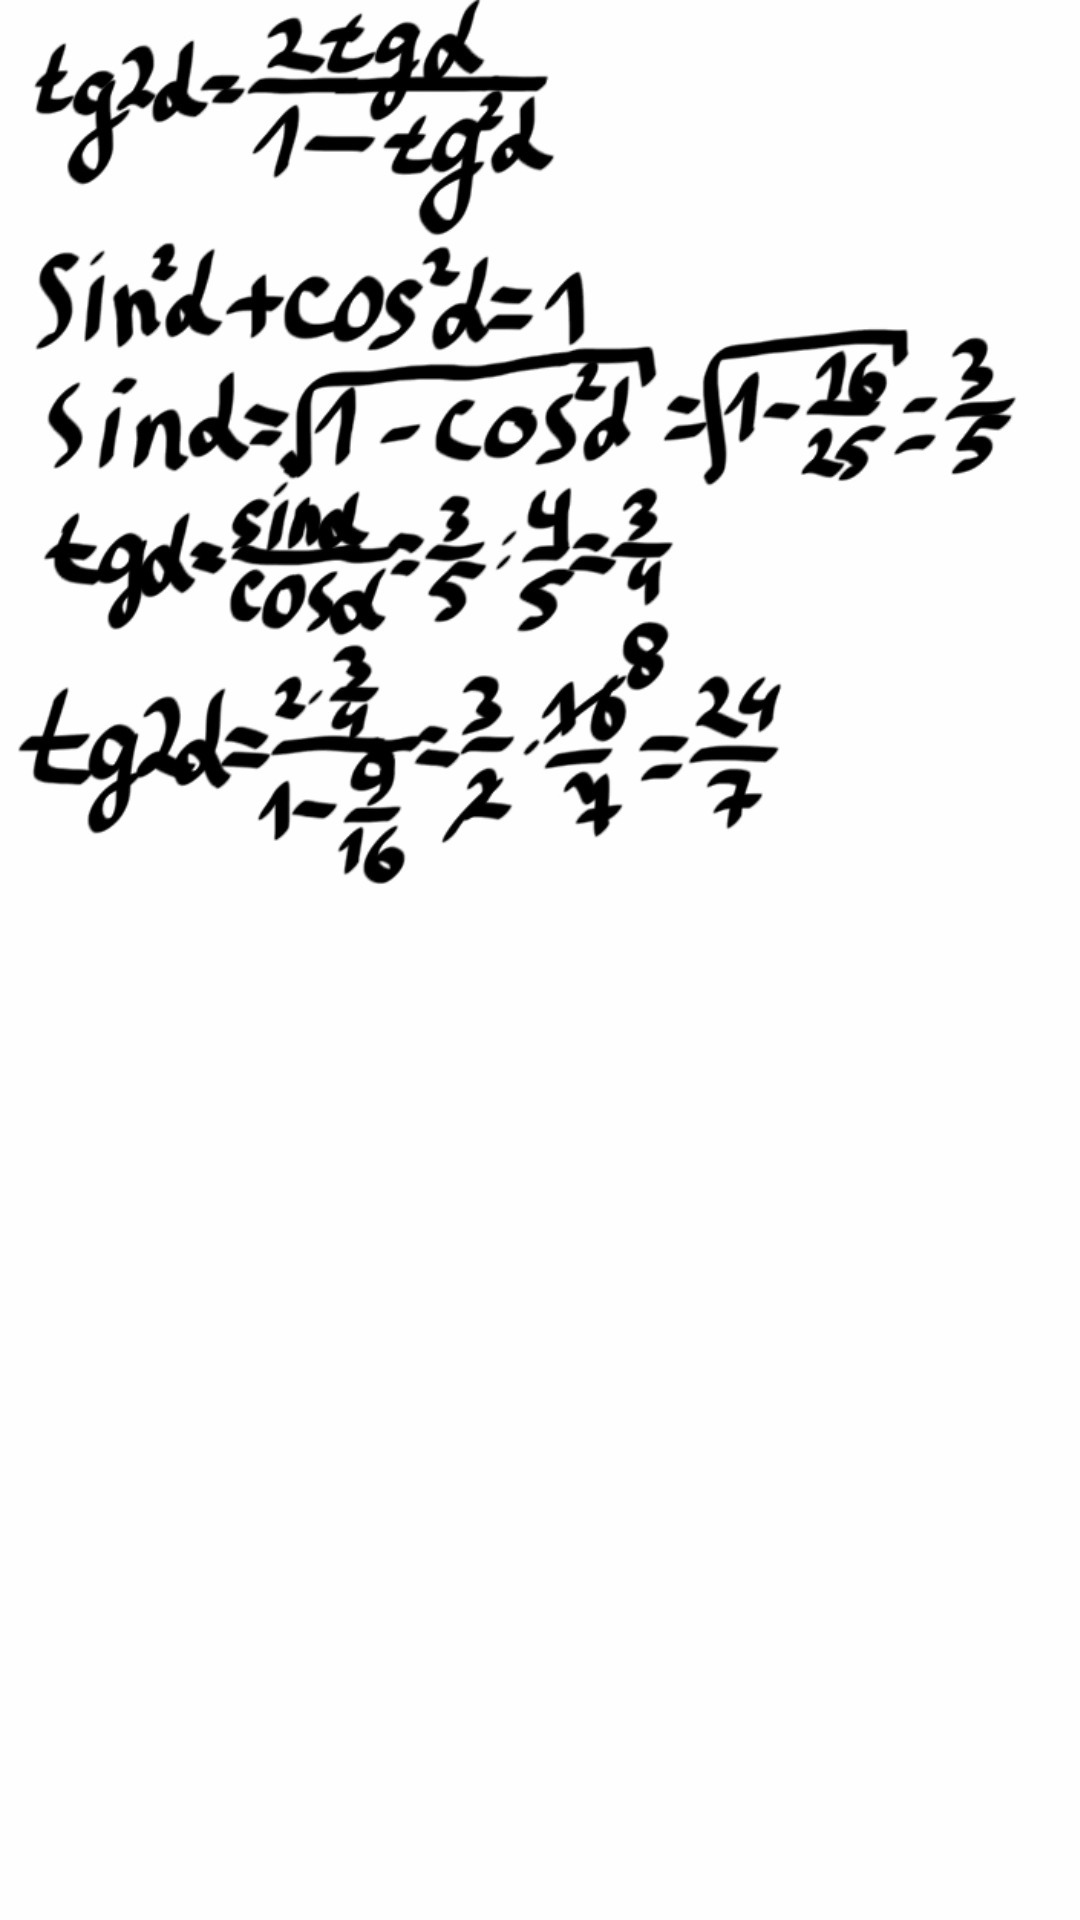 tg2α = 2tgα / 1 - tg²α
Sin²α + cos²α = 1
Sinα = √(1 - cos²α) = √(1 - 16/25) = 3/5
tgα = sinα/cosα = 3/5 : 4/5 = 3/4
tg2α = (2 · 3/4) / (1 - 9/16) = 3/2 · 16/7 = 24/7
8